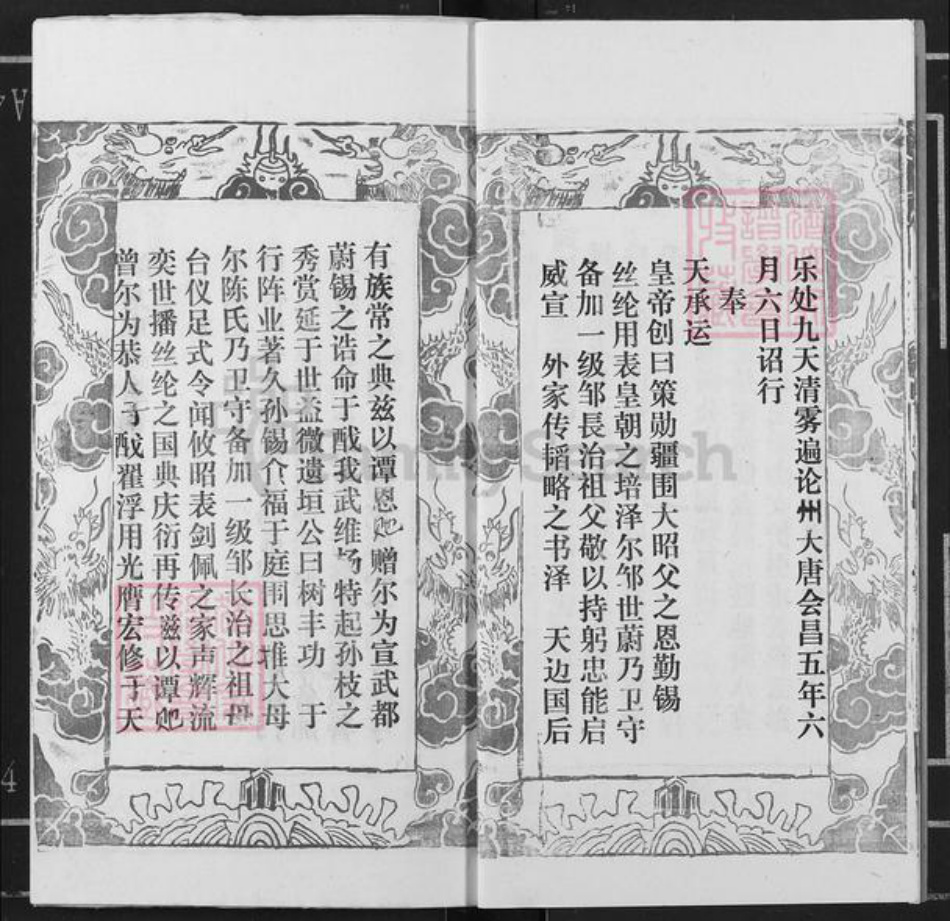 乐处九天清雾遍论州大唐会昌五年六
月六日诏行
奉
天承运
皇帝创曰策勋疆围大昭父之恩勤锡
丝纶用表皇朝之培泽尔邹世蔚乃卫守
备加一级邹長治祖父敬以持躬忠能启
威宣 外家传韬略之书泽 天边国后
有族常之典兹以谭恩赠尔为宣武都
蔚锡之诰命于戱我武维扬特起孙枝之
秀赏延于世益微遗垣公曰树丰功 于
行阵业著久孙锡介福于庭围思推大母
尔陈氏乃卫守备加一级邹长治之祖母
台仪足式令闻攸昭表剑佩之家声辉流
奕世播丝纶之国典庆衍再传兹以谭
曾尔为恭人于戱翟浮用光膺宏修于天
FamilySearch